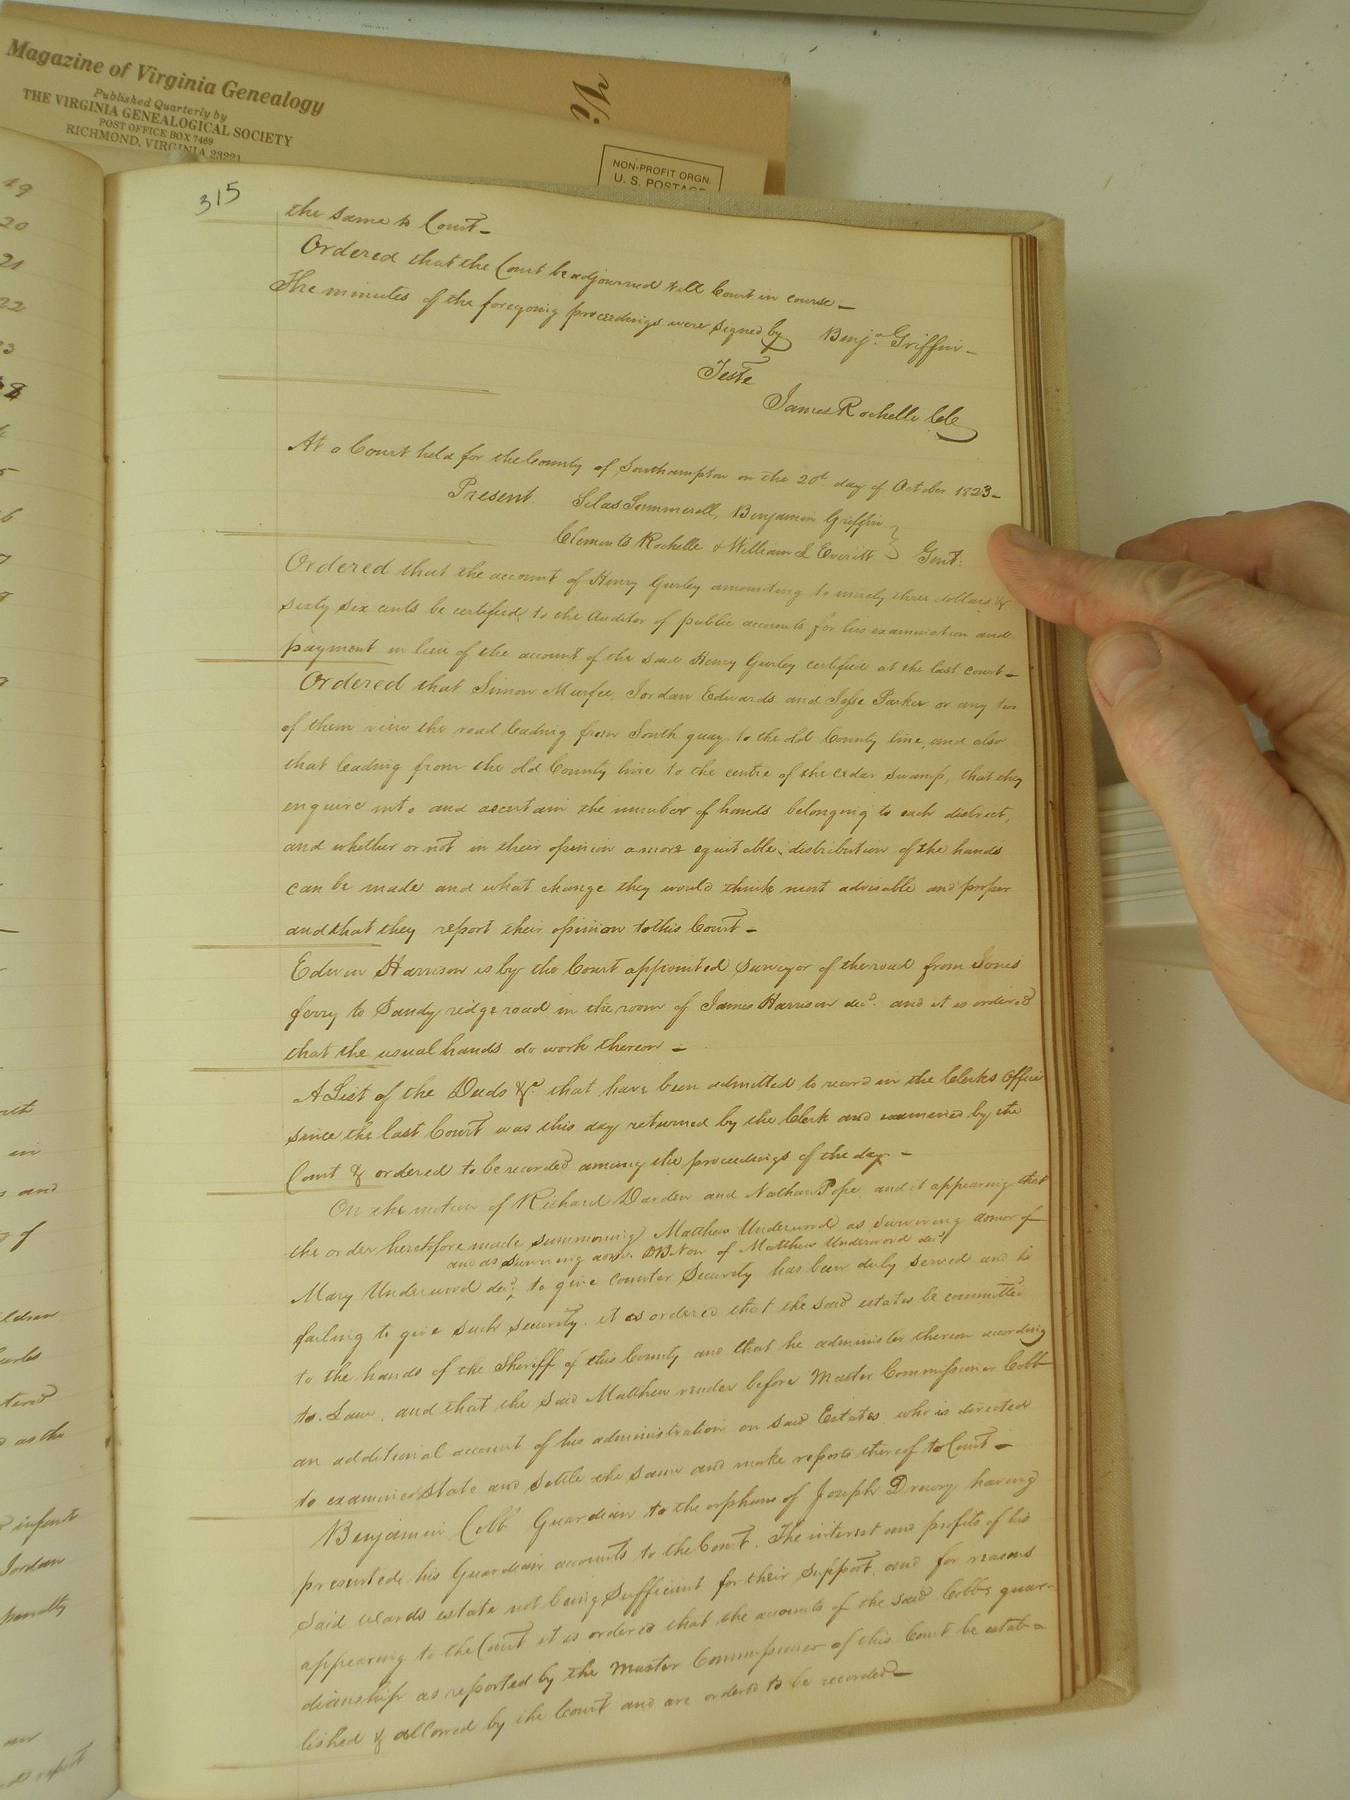 Magazine of Virginia Genealogy
Published Quarterly by
THE VIRGINIA GENEALOGICAL SOCIETY
POST OFFICE BOX 7469
RICHMOND, VIRGINIA 23221
Vi
NON-PROFIT ORGN.
U. S. POSTAGE
19
20
21
22
315
the same to Court
Ordered that the Court be adjourned till Court in course
The minutes of the foregoing proceedings were signed by Benja. Griffin
Teste
James Rochelle CC
At a Court held for the County of Southampton on the 20th day of October 1823
Present Silas Summerell, Benjamin Griffin
Clements Rochelle & William L Everitt } Gent.
Ordered that the account of Henry Gurley amounting to ninety three dollars &
sixty six cents be certified to the Auditor of public accounts for his examination and
payment in lieu of the account of the said Henry Gurley certified at the last court
Ordered that Simon Murfee, Jordan Edwards and Jesse Parker or any two
of them view the road leading from South quay to the old County line, and also
that leading from the old County line to the centre of the cedar swamp, that they
enquire into and ascertain the number of hands belonging to each district,
and whether or not in their opinion a more equitable distribution of the hands
can be made and what change they would think most advisable and proper
and that they report their opinion to this Court
Edwin Harrison is by the Court appointed surveyor of the road from Jones
ferry to Sandy ridge road in the room of James Harrison decd. and it is ordered
that the usual hands do work thereon
A List of the Deeds &c. that have been admitted to record in the Clerks Office
since the last Court was this day returned by the Clerk and examined by the
Court & ordered to be recorded among the proceedings of the day
On the motion of Richard Darden and Nathan Pope, and it appearing that
the order heretofore made summoning Matthew Underwood as surviving admor of
and as surviving admr. DBNon of Matthew Underwood decd
Mary Underwood decd, to give counter Security has been duly served and he
failing to give such security, it is ordered that the said estates be committed
to the hands of the Sheriff of this County and that he administer thereon according
to Law, and that the said Matthew render before Master Commissioner Cobb
an additional account of his administration on said Estates, who is directed
to examine state and settle the same and make reports thereof to Court
Benjamin Cobb Guardian to the orphans of Joseph Drewry having
presented his Guardian accounts to the Court. The interest and profits of his
said wards estate not being sufficient for their support, and for reasons
appearing to the Court it is ordered that the accounts of the said Cobbs guar-
dianship as reported by the Master Commissioner of this Court be estab-
lished & allowed by the Court and are ordered to be recorded